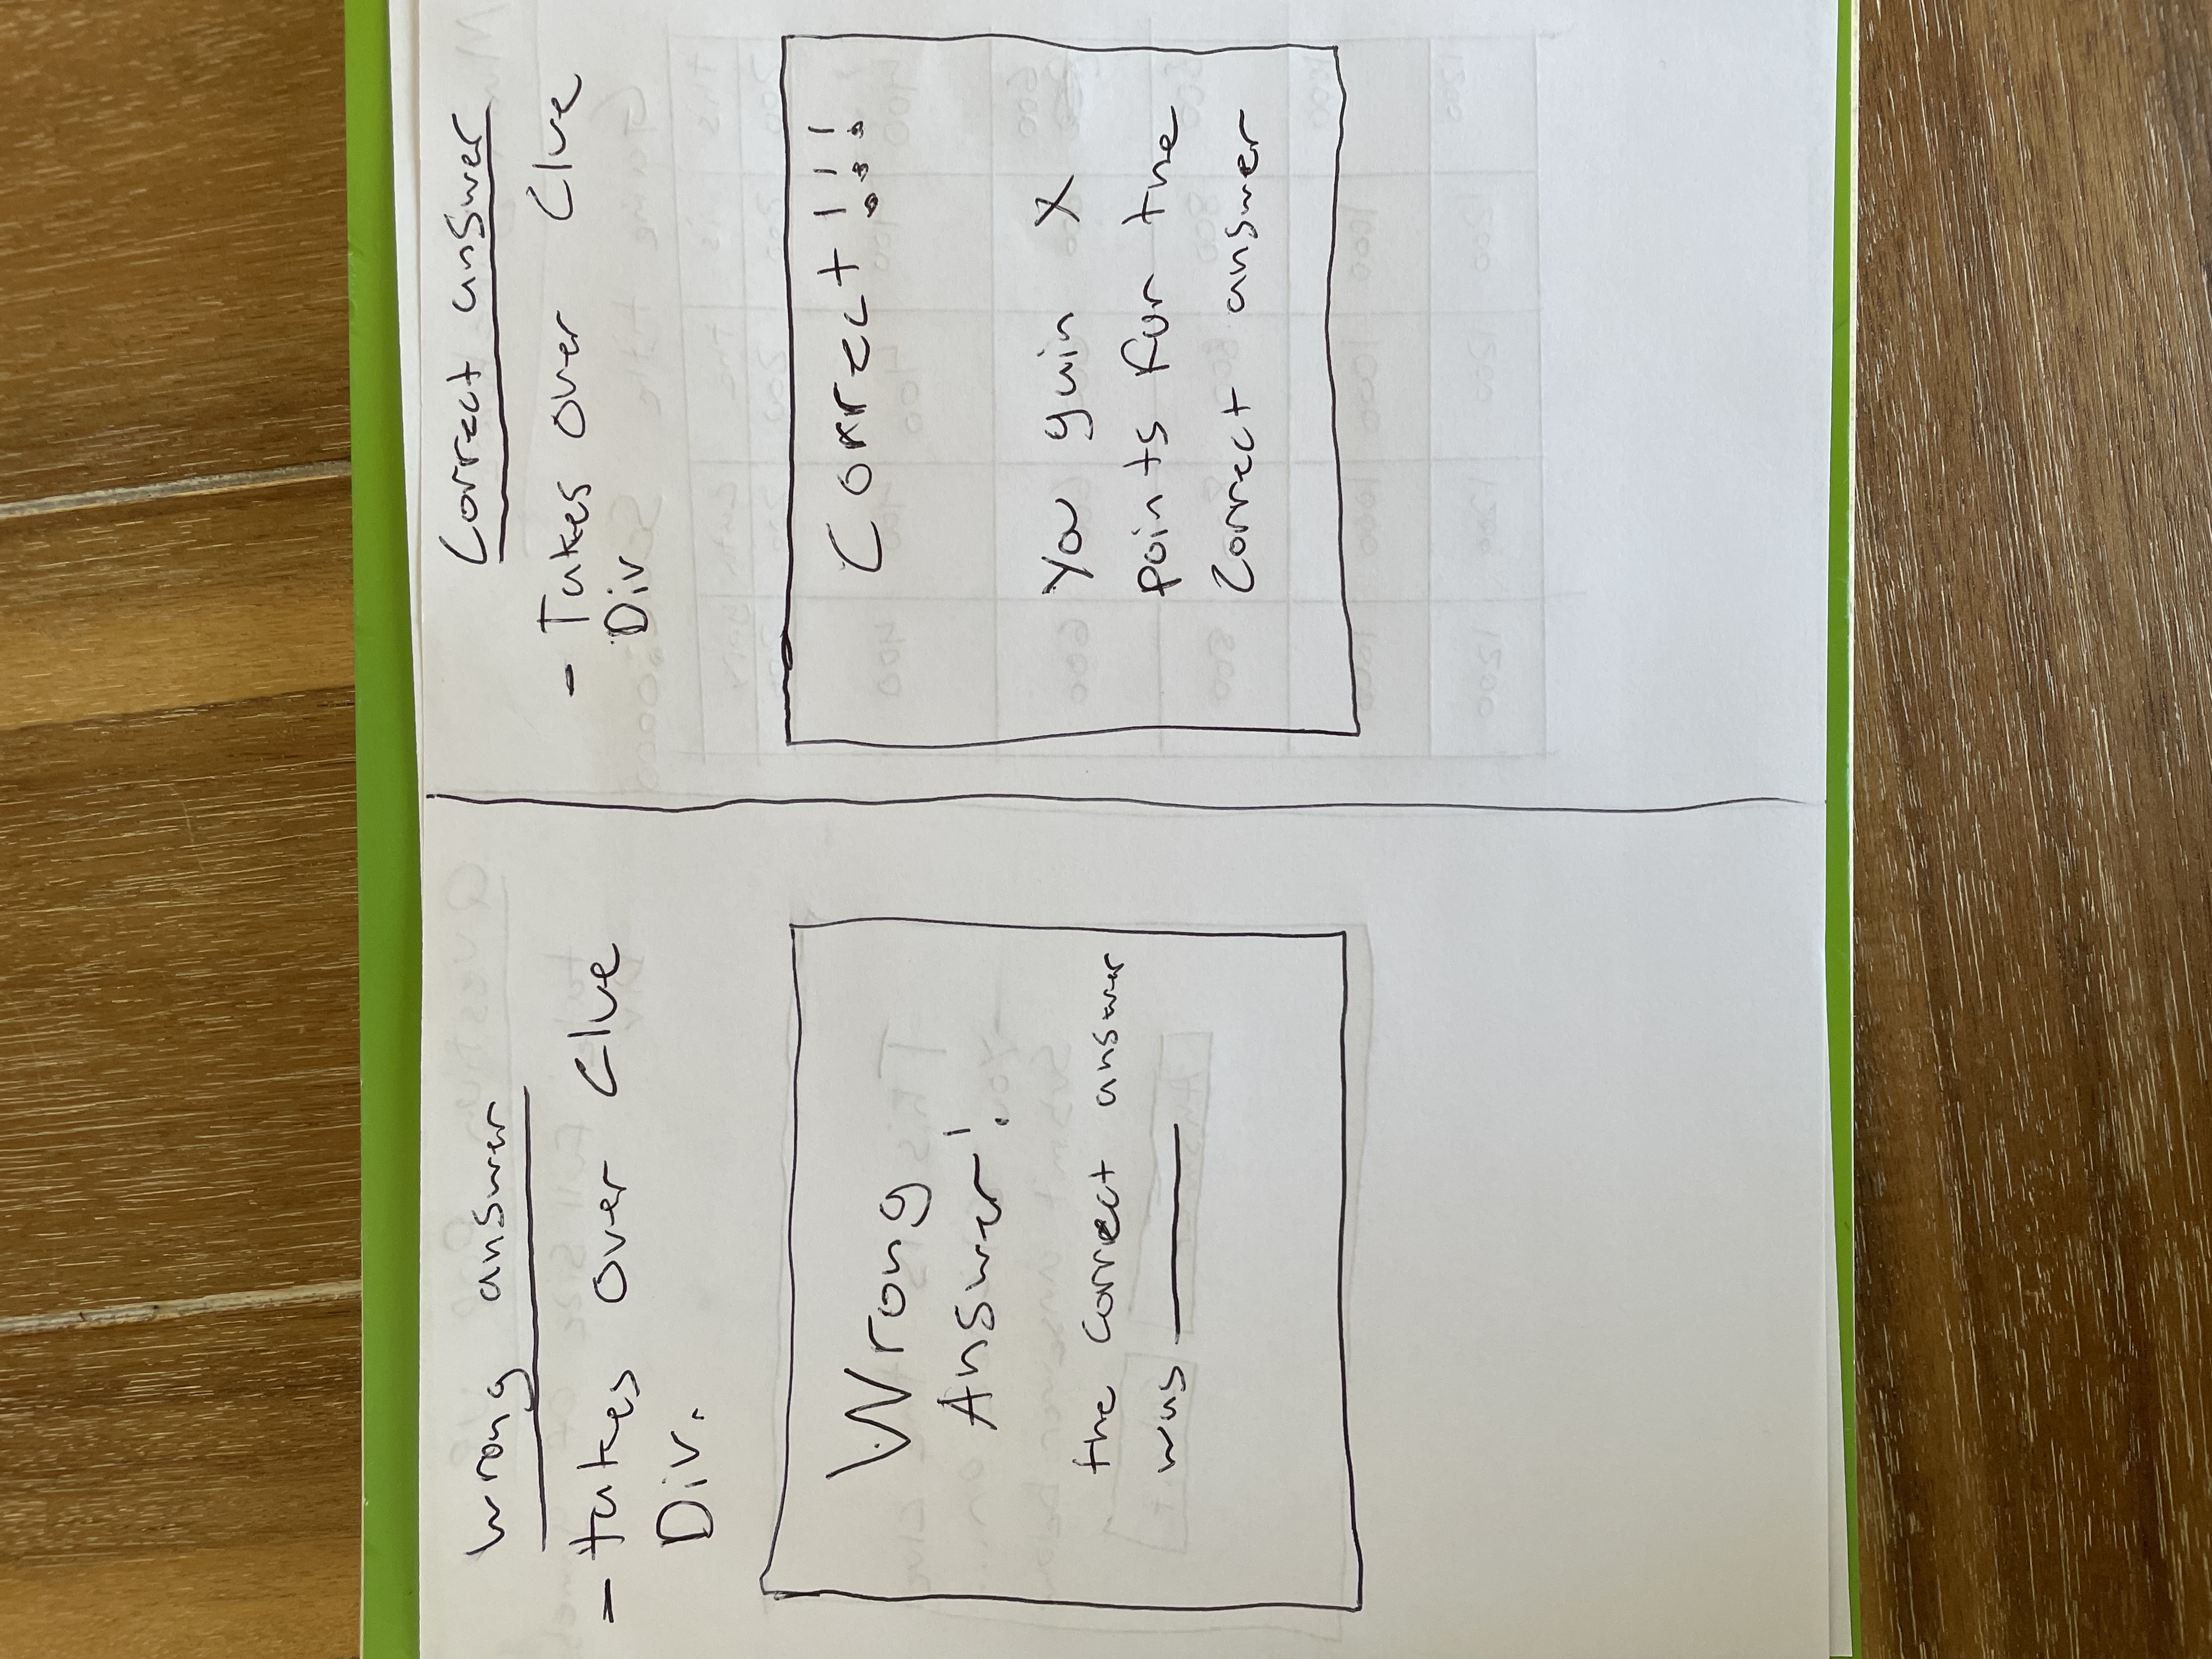 Wrong answer
- takes over Clue
Div.
Wrong
Answer!
the correct answer
was
Correct answer
- Takes over Clue
Div
Correct!!!
You gain X
points for the
Correct answer